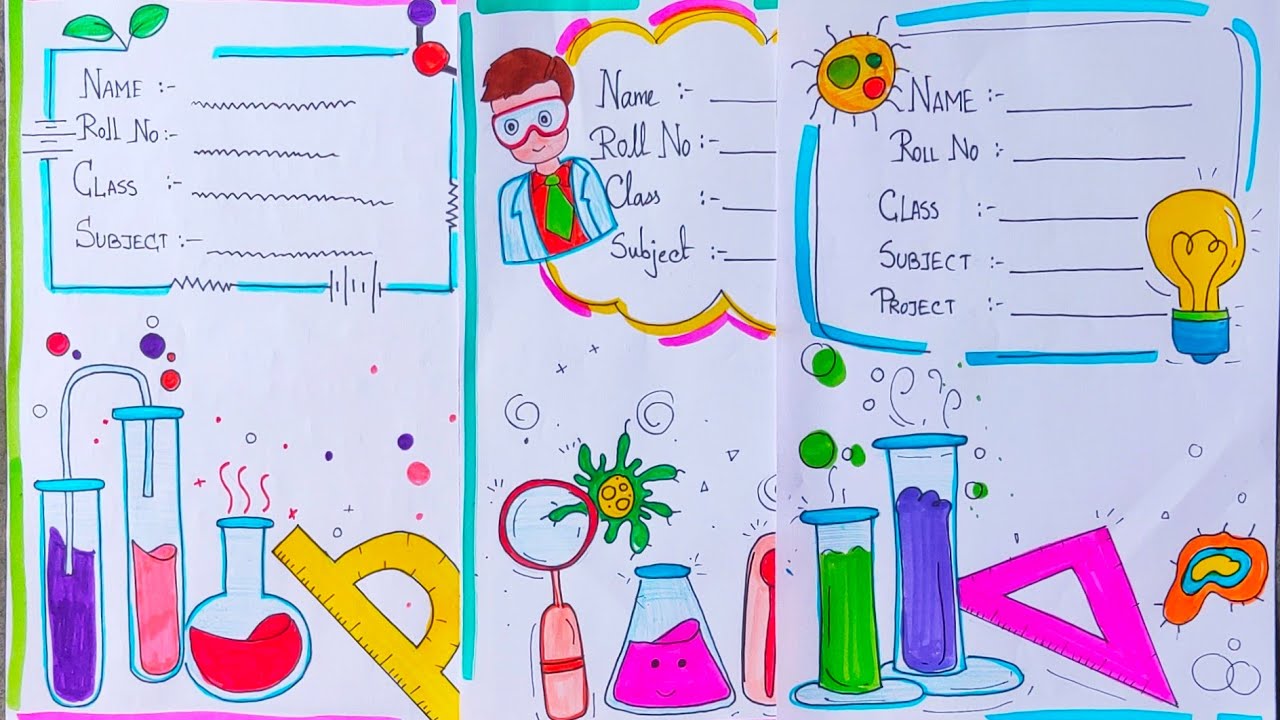 Name :-
Roll No :-
Class :-
Subject :-
Name :-
Roll No :-
Class :-
Subject :-
Name :-
Roll No :-
Class :-
Subject :-
Project :-